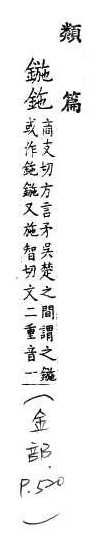 類篇
鍦鉇商支切方言矛吳楚之間謂之鍦或作鉇鍦又施智切文二重音一(金部.P.520)